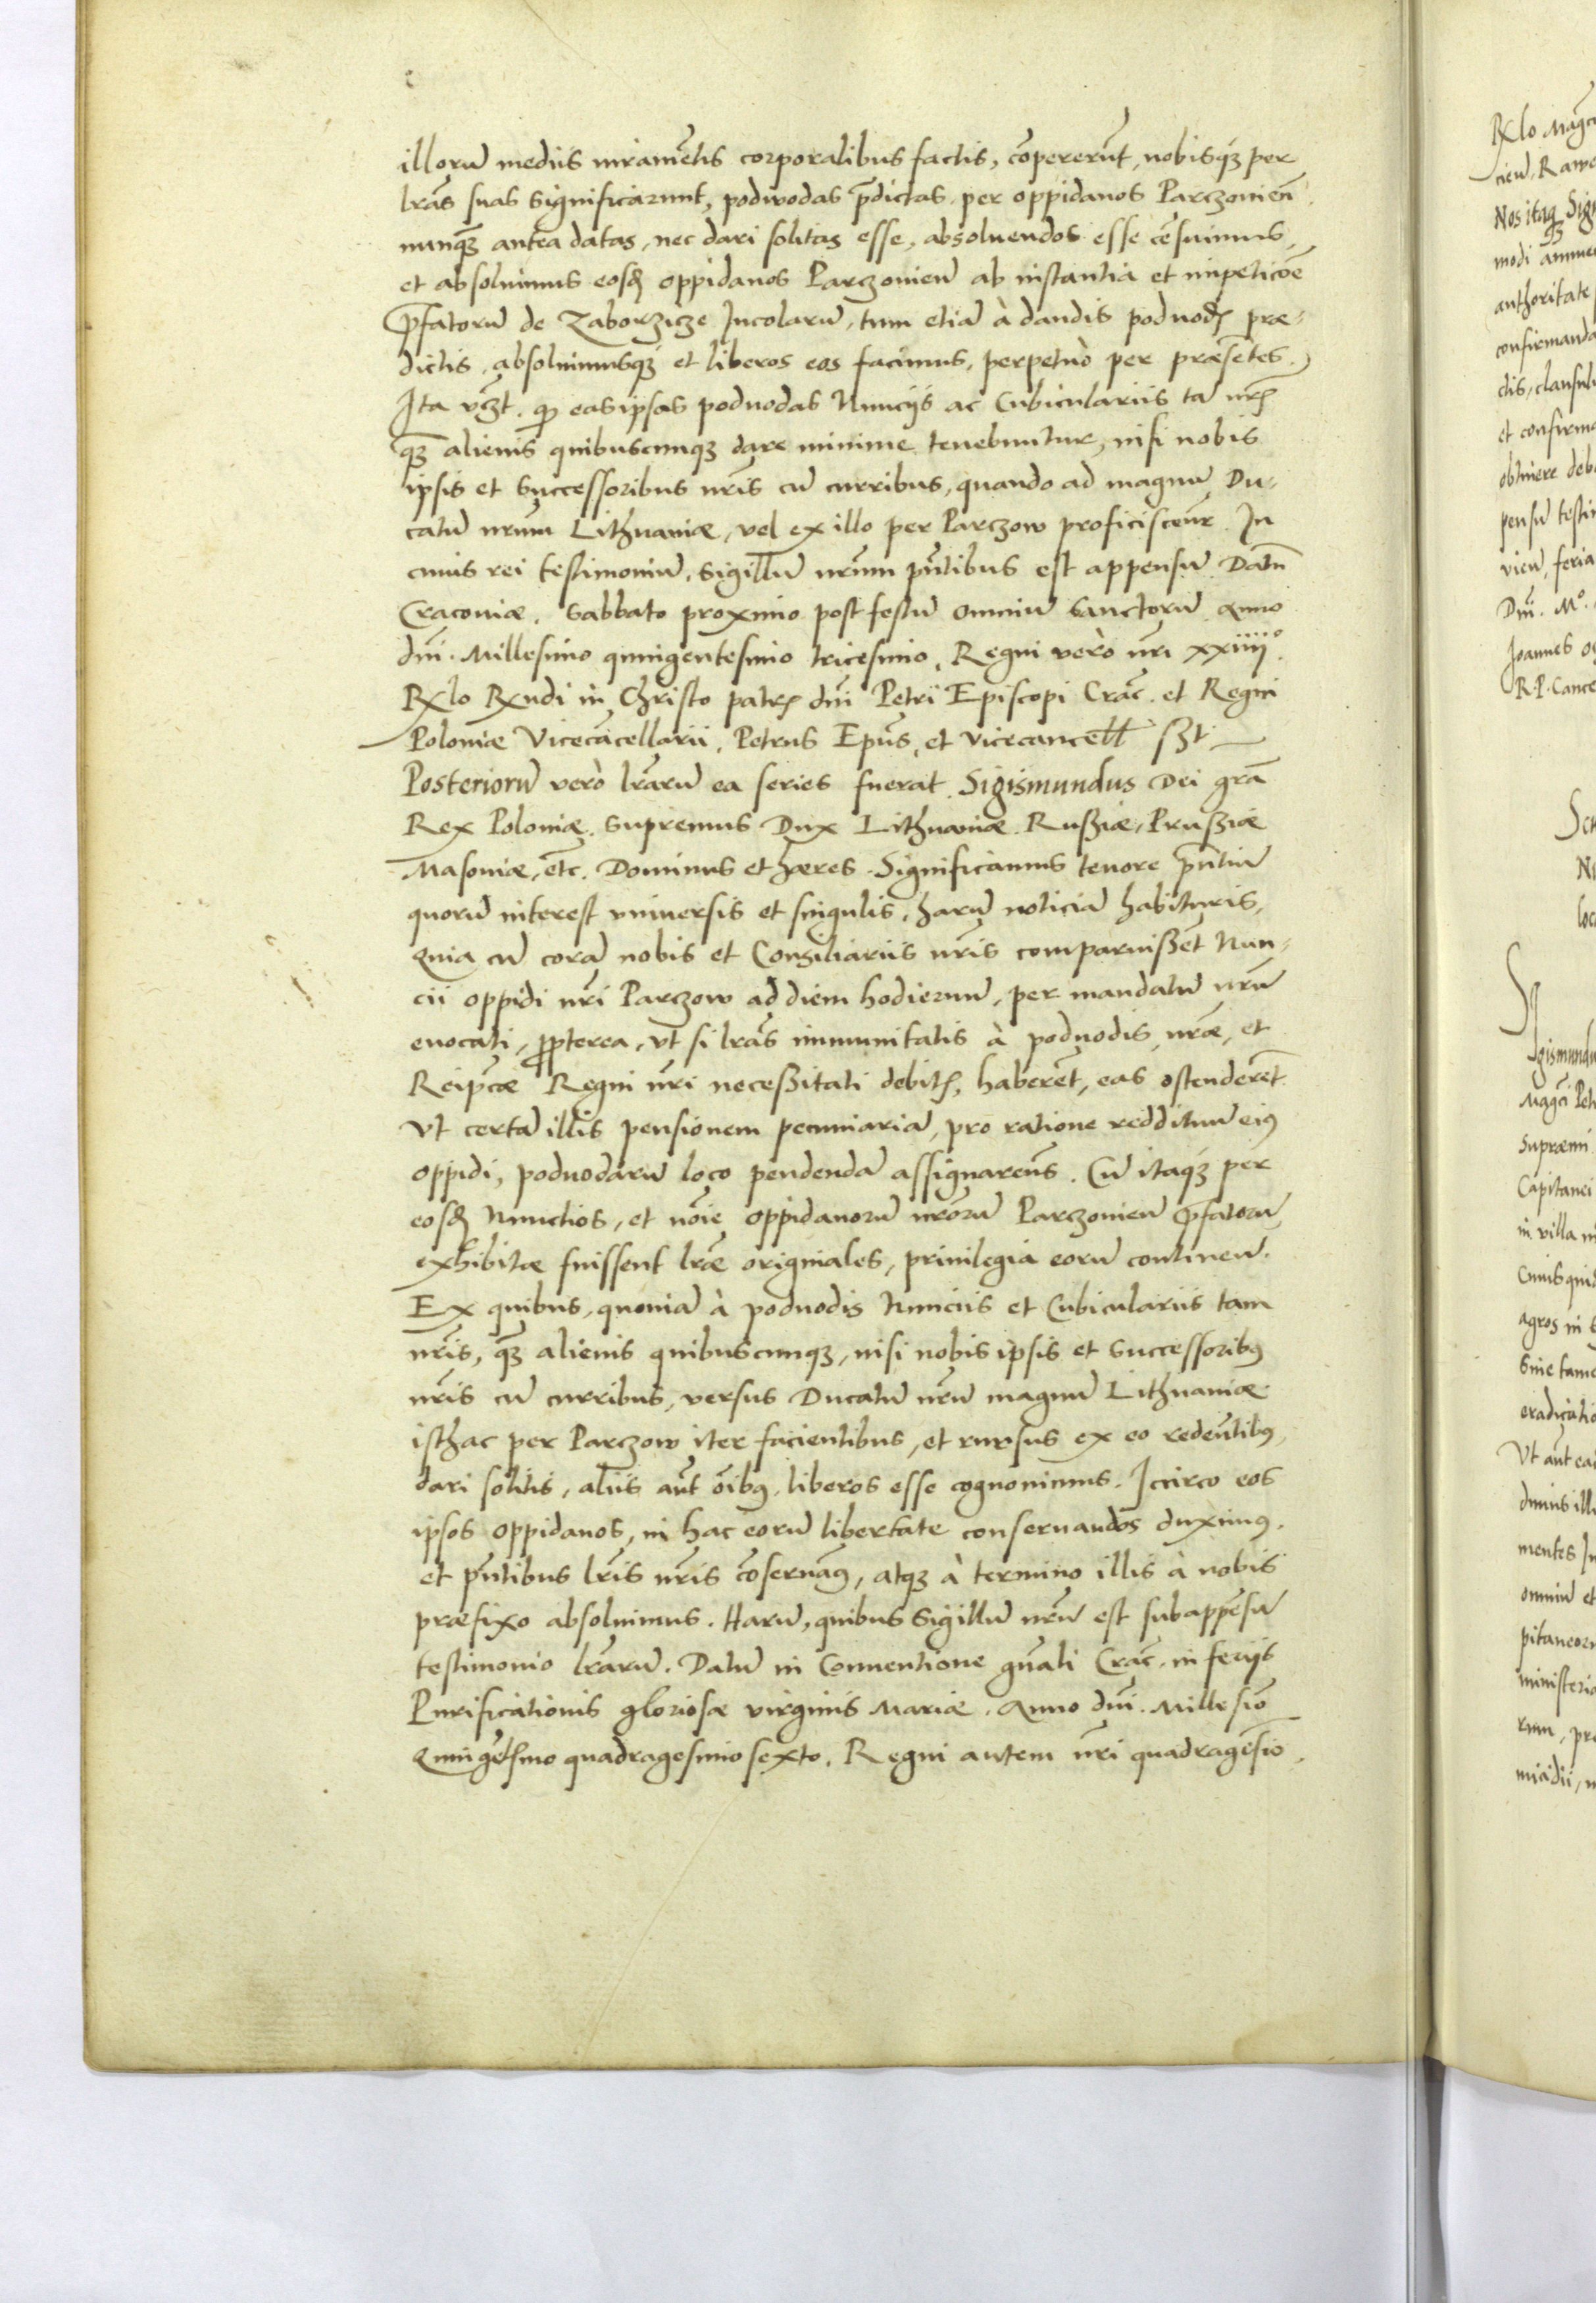 illorũ mediis iuramẽtis corporalibus factis, cõpererũt, nobisqꝫ per
lrãs suas significarunt, podwodas p̃dictas per oppidanos Parczouieñ
nunqꝫ antea datas, nec dari solitas esse, absoluendos esse cẽsuimus,
et absoluimus eosdẽ oppidanos Parczouieñ ab instantia et impeticõe
p̃fatorũ de Zaborzicze Incolarũ, tum etiã à dandis poduodis præ-
dictis, absoluimusqꝫ et liberos eos facimus, perpetuò per præsẽtes.
Ita vꝫt. qp eas ipsas poduodas Nunciis ac Cubiculariis tã nris
qꝫ alienis quibuscunqꝫ dare minime tenebuntur, nisi nobis
ipsis et Successoribus nris cũ curribus, quando ad magnũ Du-
catũ nrum Lithuaniæ, vel ex illo per Parczow proficiscẽur. In
cuius rei testimoniũ, sigillũ nrum pñtibus est appensũ. Datũ
Cracouiæ, Sabbato proximo post festũ omniũ Sanctorũ Anno
dñi. Millesimo quingentesimo tricesimo, Regni verò nri xxiiiiº.
Rxlo Rxndi in Christo patris dñi Petri Episcopi Crac̃. et Regni
Poloniæ Vicecãcellarii. Petrus Epũs, et vicecancell sst
Posteriorũ verò lrarũ ea series fuerat. Sigismundus Dei grã
Rex Poloniæ. Supremus Dux Lithuaniæ. Rußiæ, Prußiæ
Masouiæ, etc. Dominus et hæres. Significamus tenore p̃ntiũ
quorũ interest vniuersis et singulis, harũ noticiã habituris,
Quia cũ corã nobis et Consiliariis nris comparuißẽt Nun-
cii oppidi nri Parczow ad diem hodiernũ, per mandatũ nrũ
euocati, propterea, vt si lrãs immunitatis à poduodis, nræ, et
Reipcæ Regni nri neceßitati debitis, haberẽt, eas ostenderẽt.
Vt certã illis pensionem pecuniariã, pro ratione reddituũ eiꝰ
oppidi, poduodarũ loco pendendã assignarẽus. Cũ itaqꝫ per
eosdẽ Nunctios, et nõie oppidanorũ nrorũ Parczouieñ p̃fatorũ,
exhibitæ fuissent lræ originales, priuilegia eorũ continen̄.
Ex quibus, quoniã à poduodis Nunciis et Cubiculariis tam
nris, qꝫ alienis quibuscunqꝫ, nisi nobis ipsis et Successoribꝰ
nris cũ curribus, versus Ducatũ nrũ magnũ Lithuaniæ
isthac per Parczow iter facientibus, et rursus ex eo redeũtibꝰ,
dari solitis, aliis aũt õibꝰ, liberos esse cognouimus. Iccirco eos
ipsos oppidanos, in hac eorũ libertate conseruandos duximꝰ.
et pñtibus lris nris cõseruamꝰ, atqꝫ à termino illis à nobis
præfixo absoluimus. Harũ, quibus Sigillũ nrũ est subappẽsũ
testimonio lrarũ. Datũ in Conuentione gñali Crac̃. in feriis
Purificationis gloriosæ virginis Mariæ. Anno dñi. Millesĩo
Quingẽtesimo quadragesimo sexto. Regni autem nri quadragesĩo.
Rxlo Magci
cien̄, Rawe
Nos itaqꝫ Sigi
modi
authoritate
confirmanda
dis, clausul
et confirma
obtinere deb
pensũ testi
vien̄, feria
Dñi. Mº.
Joannes
R. P. Cance
Nos
loc
Sigismundu
Magci Petr
Supræmi
Capitanei
in villa
Cuius quid
agros in
Sine tame
eradicatio
Vt aũt ea
diuus ill
mentes In
omniũ et
pitaneor
ministeri
rum, pre
micidii,